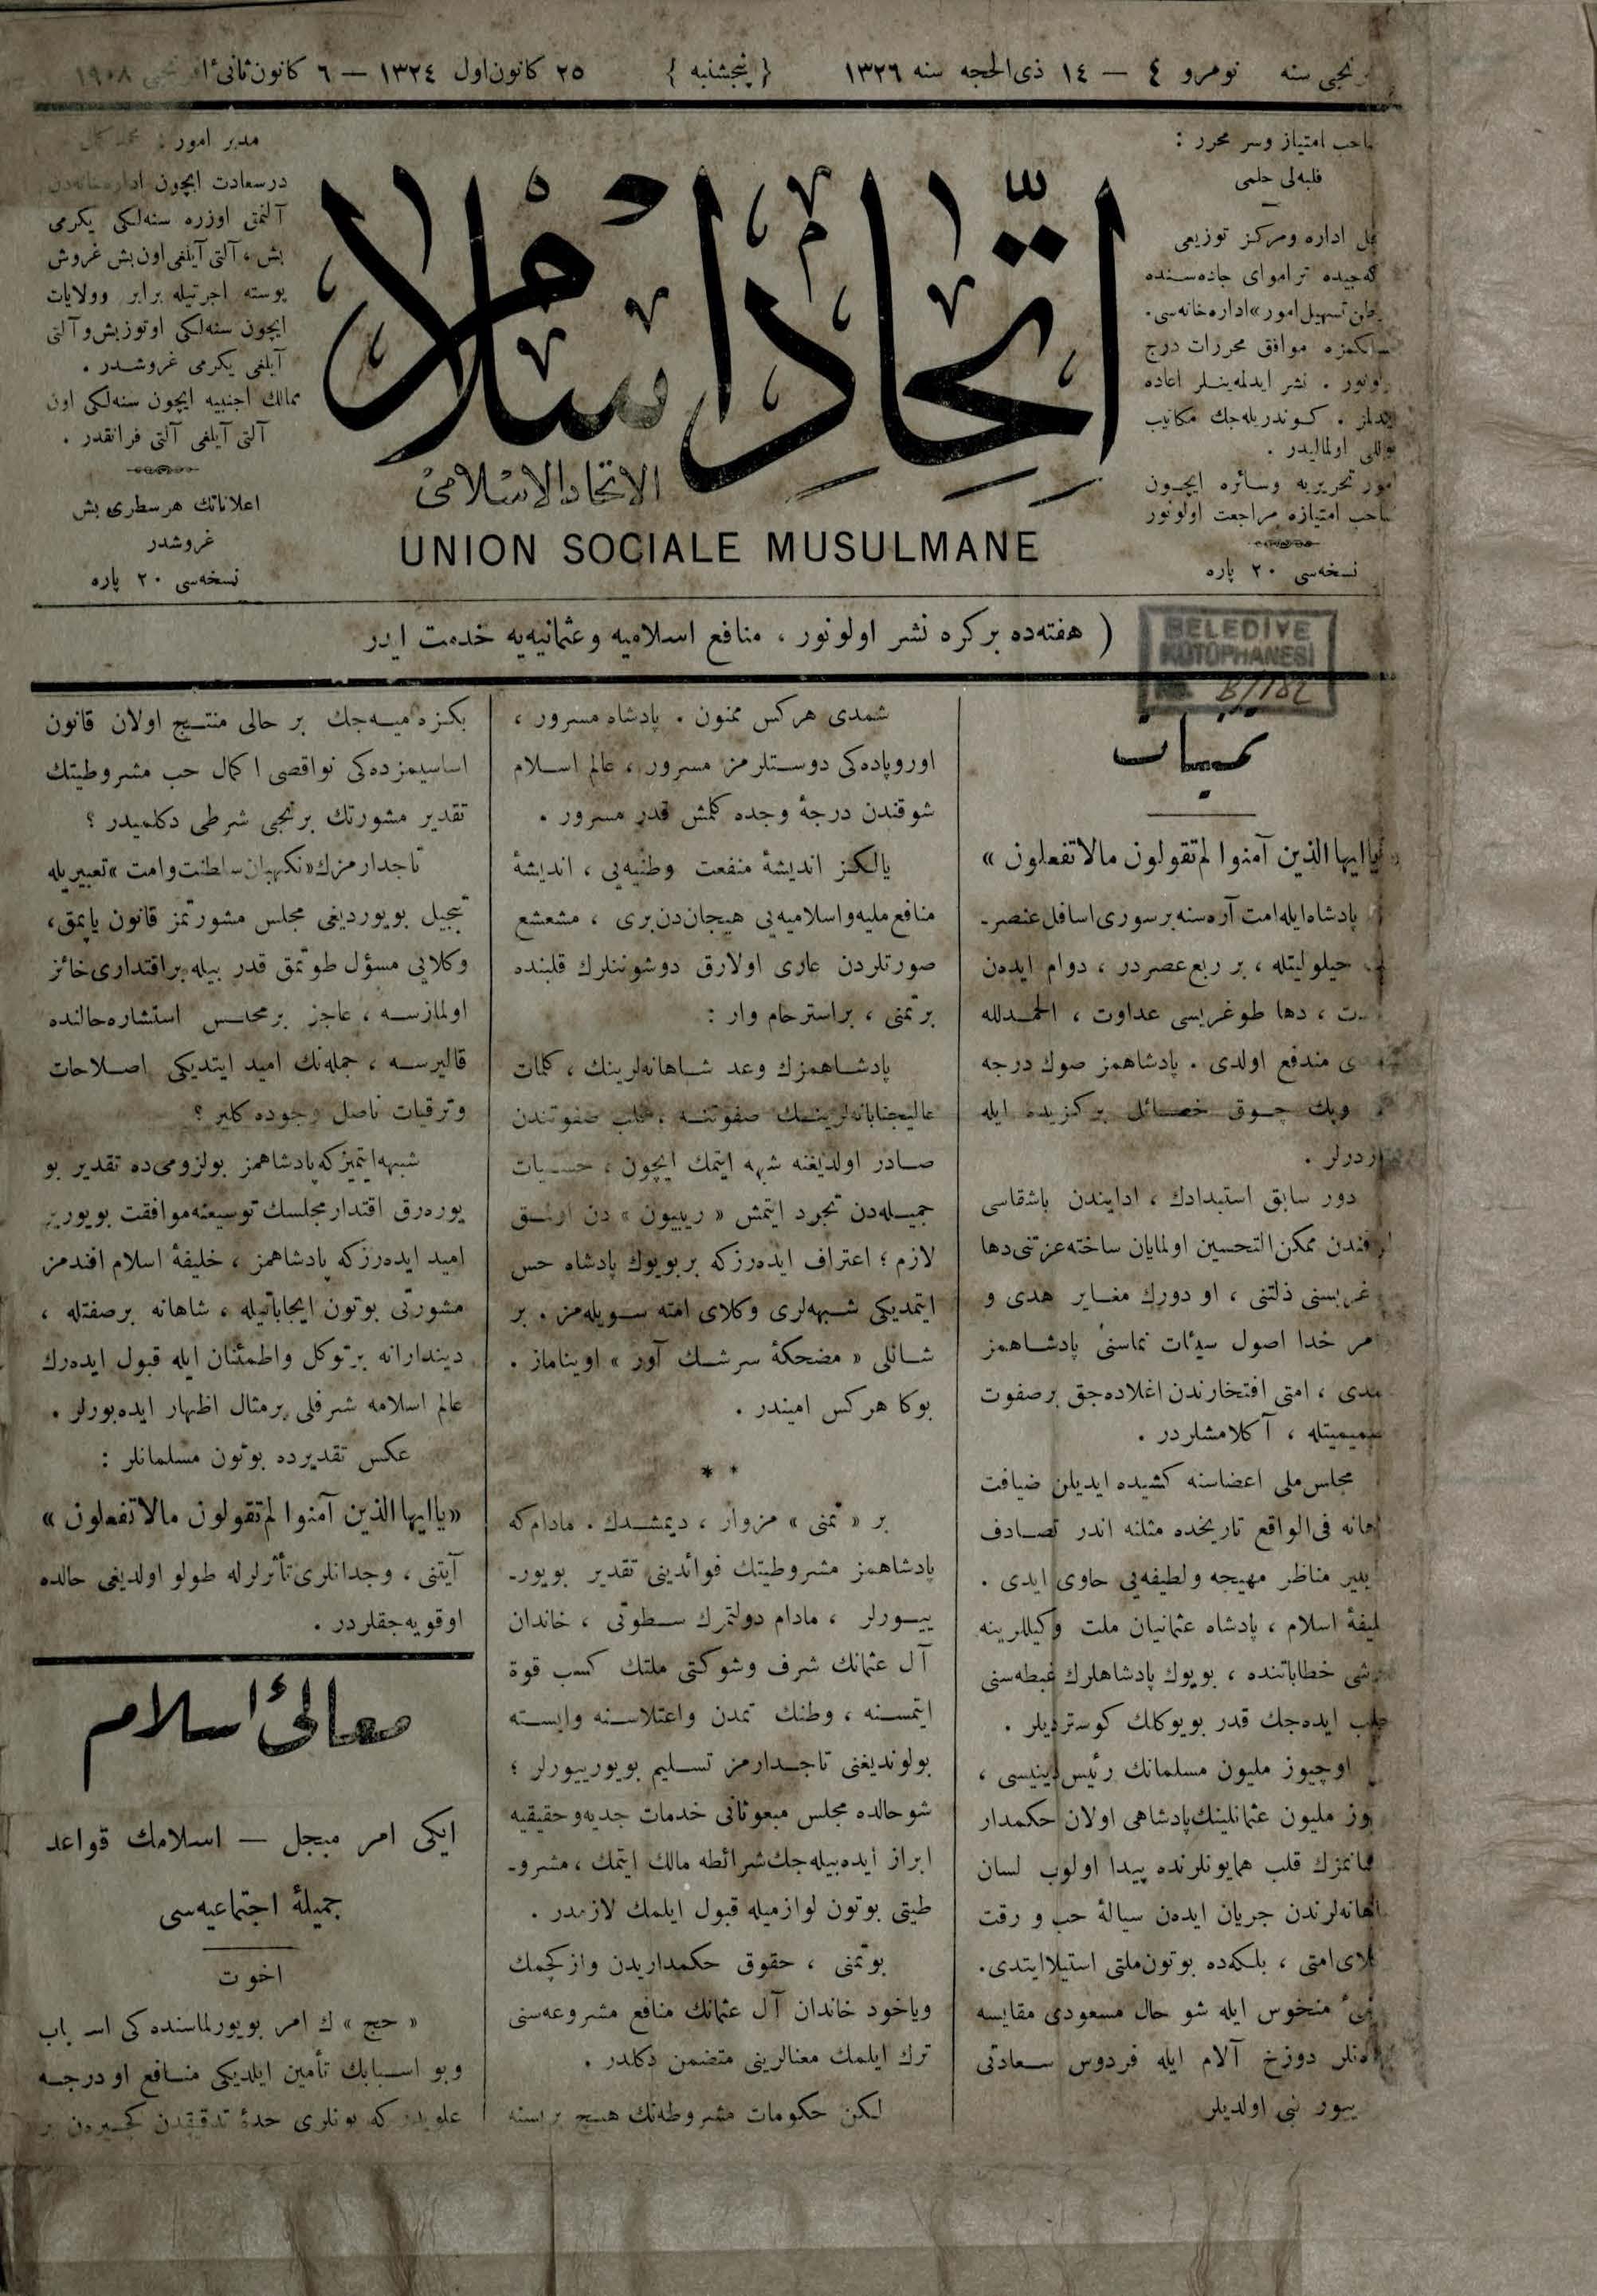 نومرو ٤ — ١٤ ذى الحجه سنه ١٣٢٦ { پنجشنبه } ٢٥ كانون اول ١٣٢٤ — ٦ كانون ثانىء
امتياز وسر محرر :
فلبه‌لى حلمى
اداره ومركز توزيعى
تراموای جاده‌سنده
تسهيل امور» اداره‌خانه‌سى.
موافق محررات درج
نشر ايدلمه‌ينلر اعاده
كوندريله‌جك مكاتيب
اولماليدر .
تحريريه وسائره ايچون
امتيازه مراجعت اولونور
نسخه‌سى ٢٠ پاره
اتّحاد اسلام
الاتحاد الاسلامى
UNION SOCIALE MUSULMANE
مدير امور :
درسعادت ايچون اداره‌خانه‌دن
آلنمق اوزره سنه‌لكى يكرمى
بش ، آلتى آيلغى اون بش غروش
پوسته اجرتيله برابر وولايات
ايچون سنه‌لكى اوتوزبش و آلتى
آيلغى يكرمى غروشدر .
ممالك اجنبيه ايچون سنه‌لكى اون
آلتى آيلغى آلتى فرانقدر .
اعلاناتك هر سطرى بش
غروشدر
نسخه‌سى ٢٠ پاره
( هفته‌ده بركره نشر اولونور ، منافع اسلاميه وعثمانيه‌يه خدمت ايدر
BELEDİYE
KÜTÜPHANESİ
ياايها الذين آمنوا لم تقولون مالا تفعلون »
پادشاه ايله امت آره‌سنه برسورى اسافل عنصر-
حيلوليتله ، بر ربع عصردر ، دوام ايده‌ن
دها طوغريسى عداوت ، الحمدلله
مندفع اولدى . پادشاهمز صوك درجه
وپك چوق خصائل بركزيده ايله
دور سابق استبدادك ، ادايندن باشقاسى
ممكن التحسين اولمايان ساخته عزتنى دها
ذلتنى ، او دورك مغاير هدى و
خدا اصول سيئات نماسنى پادشاهمز
امتى افتخارندن اغلاده‌جق برصفوت
آكلامشلردر .
مجلس ملى اعضاسنه كشيده ايديلن ضيافت
فى الواقع تاريخده مثلنه اندر تصادف
مناظر مهيجه ولطيفه‌يى حاوى ايدى .
اسلام ، پادشاه عثمانيان ملت وكيللرينه
خطاباتنده ، بويوك پادشاهلرك غبطه‌سنى
ايده‌جك قدر بويوكلك كوسترديلر .
اوچيوز مليون مسلمانك رئيس دينيسى ،
مليون عثمانلينك پادشاهى اولان حكمدار
قلب همايونلرنده پيدا اولوب لسان
جريان ايده‌ن سيالۀ حب و رقت
امتى ، بلكه‌ده بوتون ملتى استيلا ايتدى.
منحوس ايله شو حال مسعودى مقايسه
دوزخ آلام ايله فردوس سعادتى
اولديلر
شمدى هركس ممنون . پادشاه مسرور ،
اوروپاده‌كى دوستلرمز مسرور ، عالم اسلام
شوقندن درجۀ وجده كلمش قدر مسرور .
يالكز انديشۀ منفعت وطنيه‌يى ، انديشۀ
منافع مليه و اسلاميه‌يى هيجان‌دن برى ، مشعشع
صورتلردن عارى اولارق دوشوننلرك قلبنده
برتمنى ، براسترحام وار :
پادشاهمزك وعد شاهانه‌لرينك ، كلمات
عاليجنابانه‌لرينك صفوتنه ، قلب صفوتندن
صادر اولديغنه شبهه ايتمك ايچون ، حسيات
جميله‌دن تجرد ايتمش « ريبيون » دن
لازم ؛ اعتراف ايده‌رزكه بربويوك پادشاه حس
ايتمديكى شبهه‌لرى وكلاى امته سويله‌مز . بر
شانلى « مضحكۀ سرشك آور » اويناماز .
بوكا هركس اميندر .
* *
بر « تمنى » مزوار ، ديمشدك . مادام كه
پادشاهمز مشروطيتك فوائدينى تقدير بويور-
ييورلر ، مادام دولتمزك سطوتى ، خاندان
آل عثمانك شرف وشوكتى ملتك كسب قوۀ
ايتمسنه ، وطنك تمدن واعتلاسنه وابسته
بولونديغنى تاجدارمز تسليم بويورييورلر ؛
شوحالده مجلس مبعوثانى خدمات جديه و حقيقيه
ابراز ايده‌بيله‌جك شرائطه مالك ايتمك ، مشرو-
طيتى بوتون لوازميله قبول ايلمك لازمدر .
بوتمنى ، حقوق حكمداريدن وازكچمك
وياخود خاندان آل عثمانك منافع مشروعه‌سنى
ترك ايلمك معنالرينى متضمن دكلدر .
لكن حكومات مشروطه‌نك هيچ برسنه
بكزه‌ميه‌جك بر حالى منتج اولان قانون
اساسيمزده‌كى نواقصى اكمال حب مشروطيتك
تقدير مشورتك برنجى شرطى دكلميدر ؟
تاجدارمزك «نكهبان سلطنت وامت» تعبيريله
تبجيل بويورديغى مجلس مشورتمز قانون ياپمق ،
وكلايى مسؤل طوتمق قدر بيله براقتدارى حائز
اولمازسه ، عاجز برمجلس استشاره حالنده
قاليرسه ، جمله‌نك اميد ايتديكى اصلاحات
وترقيات ناصل وجوده كلير ؟
شبهه ايتميزكه پادشاهمز بولزومى‌ده تقدير بو
يوره‌رق اقتدار مجلسك توسيعنه موافقت
اميد ايده‌رزكه پادشاهمز ، خليفۀ اسلام افندمز
مشورتى بوتون ايجاباتيله ، شاهانه برصفتله ،
ديندارانه برتوكل واطمئنان ايله قبول ايده‌رك
عالم اسلامه شرفلى برمثال اظهار ايده‌يورلر .
عكس تقديرده بوتون مسلمانلر :
«ياايها الذين آمنوا لم تقولون مالا تفعلون »
آيتنى ، وجدانلرى تأثرلرله طولو اولديغى حالده
اوقويه‌جقلردر .
معالئ اسلام
ايكى امر مبجل — اسلامك قواعد
جميلۀ اجتماعيه‌سى
اخوت
« حج » ك امر بويورلماسنده‌كى اسباب
وبو اسبابك تأمين ايلديكى منافع او درجه
كه بونلرى